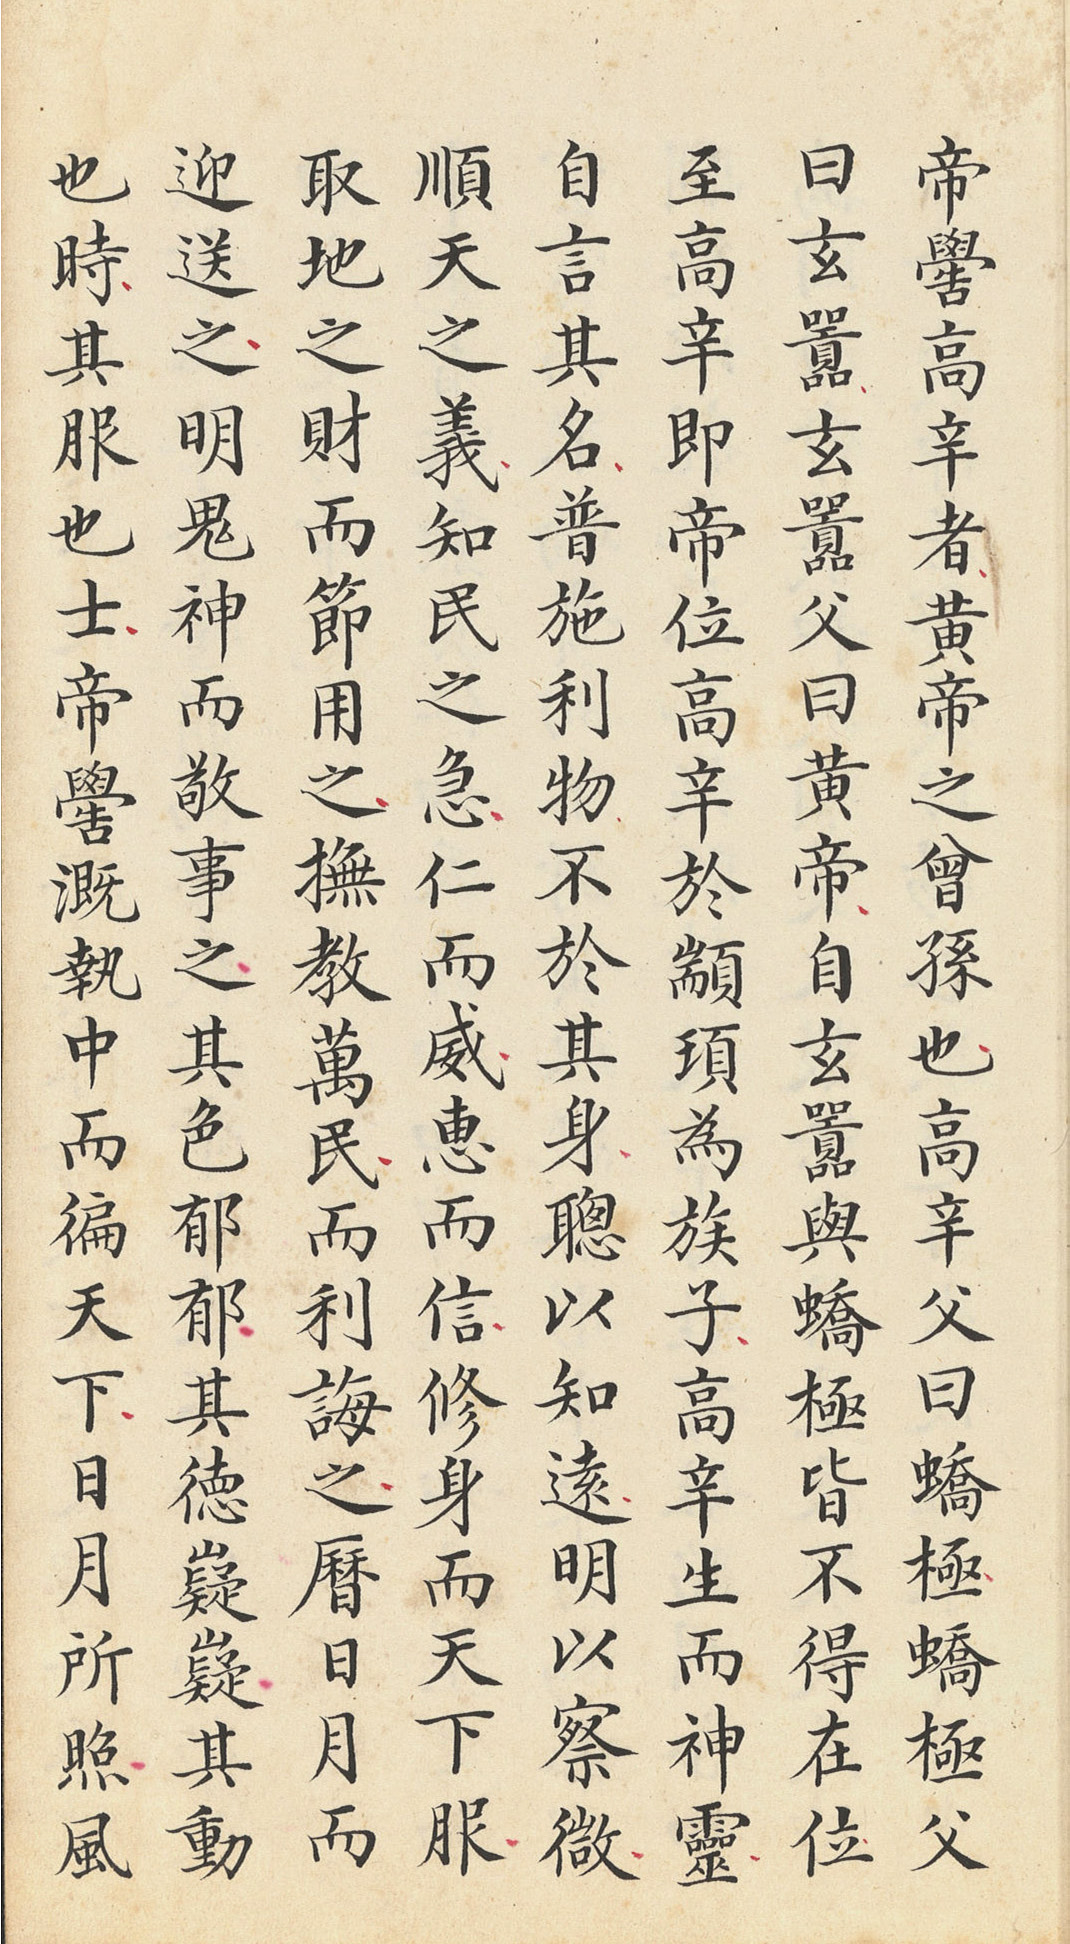 帝嚳高辛者黃帝之曾孫也高辛父曰蟜極蟜極父
曰玄囂玄囂父曰黃帝自玄囂與蟜極皆不得在位
至高辛即帝位高辛於顓頊為族子高辛生而神靈
自言其名普施利物不於其身聰以知遠明以察微
順天之義知民之急仁而威惠而信修身而天下服
取地之財而節用之撫教萬民而利誨之曆日月而
迎送之明鬼神而敬事之其色郁郁其德嶷嶷其動
也時其服也士帝嚳溉執中而徧天下日月所照風